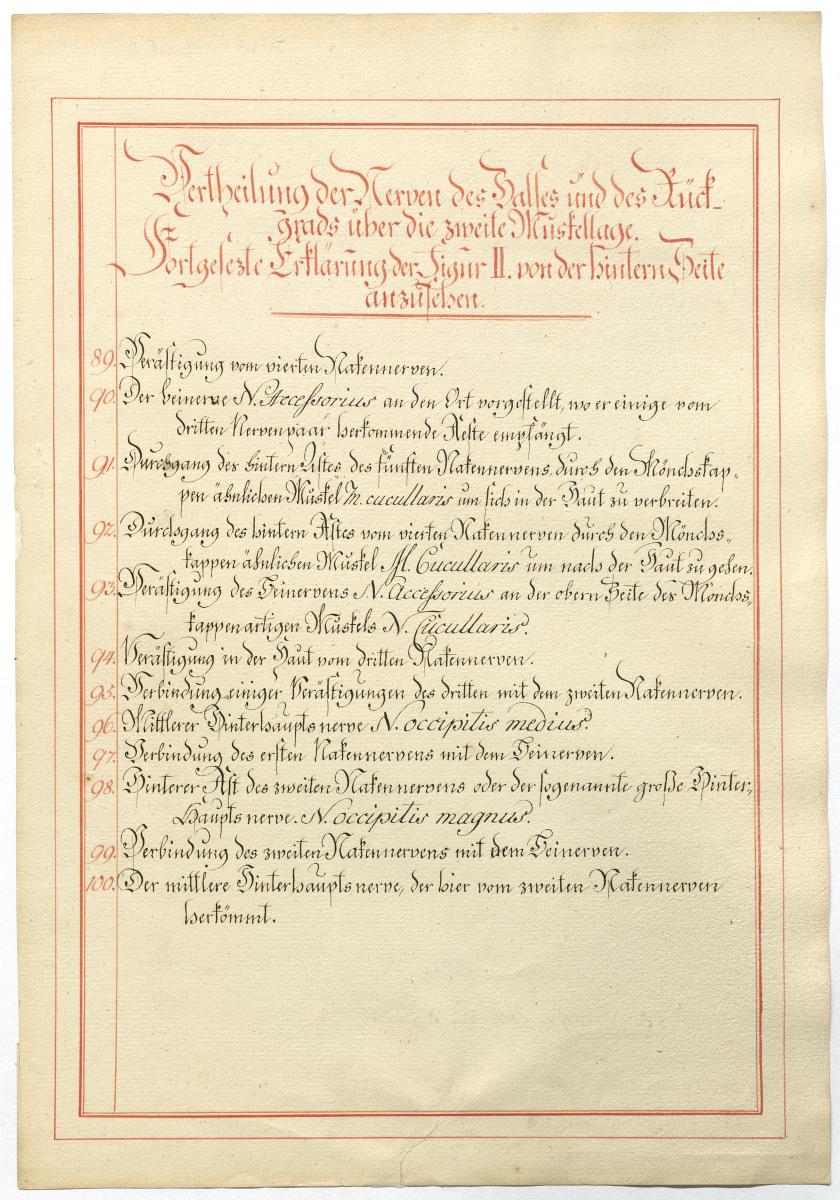 Vertheilung der Nerven des Halses und des Rück-
grads über die zweite Muskellage.
Fortgesezte Erklärung der Figur II. von der hintern Seite
anzusehen.
89. Verästigung vom vierten Nakennerven.
90. Der Beinerve N. Accessorius an den Ort vorgestellt, wo er einige vom
dritten Nervenpaar herkommende Aeste empfängt.
91. Durchgang des hintern Astes des fünften Nakennervens, durch den Mönchskap-
pen ähnlichen Muskel M. cucullaris um sich in der Haut zu verbreiten.
92. Durchgang des hintern Astes vom vierten Nakennerven durch den Mönchs-
kappen ähnlichen Muskel M. Cucullaris um nach der Haut zu gehen.
93. Verästigung des Beinervens N. Accessorius an der obern Seite des Mönchs-
kappenartigen Muskels N. Cucullaris.
94. Verästigung in der Haut vom dritten Nakennerven.
95. Verbindung einiger Verästigungen des dritten mit dem zweiten Nakennerven.
96. Mittlerer Hinterhauptsnerve N. occipitis medius.
97. Verbindung des ersten Nakennervens mit dem Beinerven.
98. Hinterer Ast des zweiten Nakennervens oder der sogenannte große Hinter-
Hauptsnerve. N. occipitis magnus.
99. Verbindung des zweiten Nakennervens mit dem Beinerven.
100. Der mittlere Hinterhauptsnerve, der hier vom zweiten Nakennerven
herkömmt.